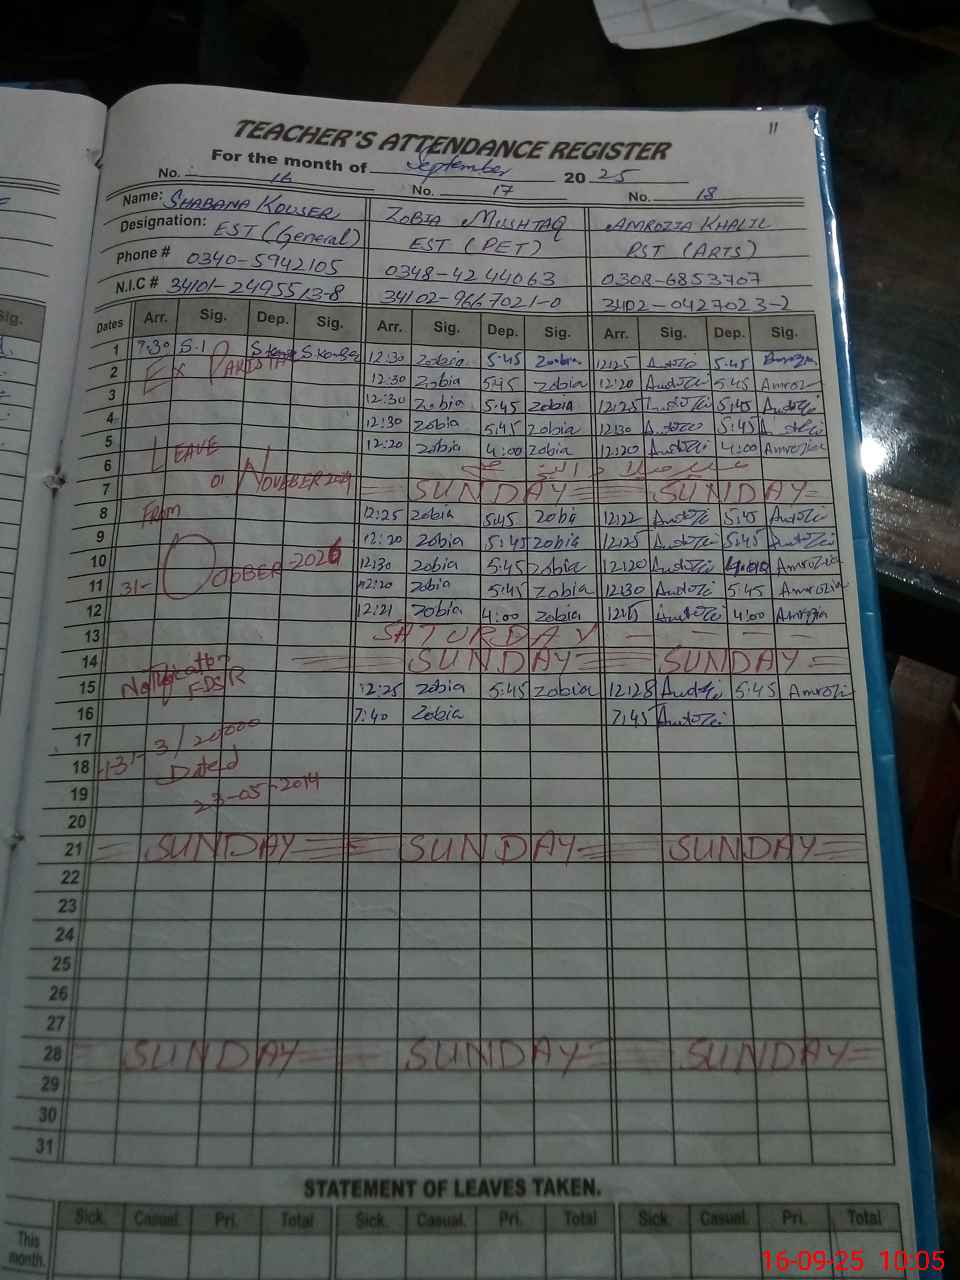 11
TEACHER'S ATTENDANCE REGISTER
For the month of September 2025
No. 16 No. 17 No. 18
Name: SHABANA KOUSER ZOBIA MUSHTAQ AMROZIA KHALIL
Designation: EST (General) EST (PET) PST (ARTS)
Phone # 0340-5942105 0348-4244063 0308-6853707
N.I.C # 34101-2495513-8 34102-9667021-0 34102-0427023-2
Dates Arr. Sig. Dep. Sig. Arr. Sig. Dep. Sig. Arr. Sig. Dep. Sig.
1 7:30 12:30 Zobia 5:45 Zobia 12:25 5:45
2 EX PAKISTAN 12:30 Zobia 5:45 Zobia 12:20 5:45
3 12:30 Zobia 5:45 Zobia 12:25 5:45
4 12:30 Zobia 5:45 Zobia 12:30 5:45
5 LEAVE 12:20 Zobia 4:00 Zobia 12:20 4:00 Amrozia
6 01 NOVEBER
7 SUNDAY SUNDAY
8 From 12:25 Zobia 5:45 Zobia 12:22 5:45
9 12:20 Zobia 5:45 Zobia 12:25 5:45
10 12:30 Zobia 5:45 Zobia 12:20 Amrozia
11 31- OCOBBER-2026 12:20 Zobia 5:45 Zobia 12:30 5:45 Amrozia
12 12:21 Zobia 4:00 Zobia 4:00 Amrozia
13 SATURDAY
14 SUNDAY SUNDAY
15 Notification 12:25 Zobia 5:45 Zobia 12:28 5:45 Amrozia
16 7:40 Zobia 7:45
17
18 Dated
19 23-05-2014
20
21 SUNDAY SUNDAY SUNDAY
22
23
24
25
26
27
28 SUNDAY SUNDAY SUNDAY
29
30
31
STATEMENT OF LEAVES TAKEN.
Sick. Casual. Pri. Total Sick. Casual. Pri. Total Sick. Casual. Pri. Total
This
month.
16-09-25 10:05